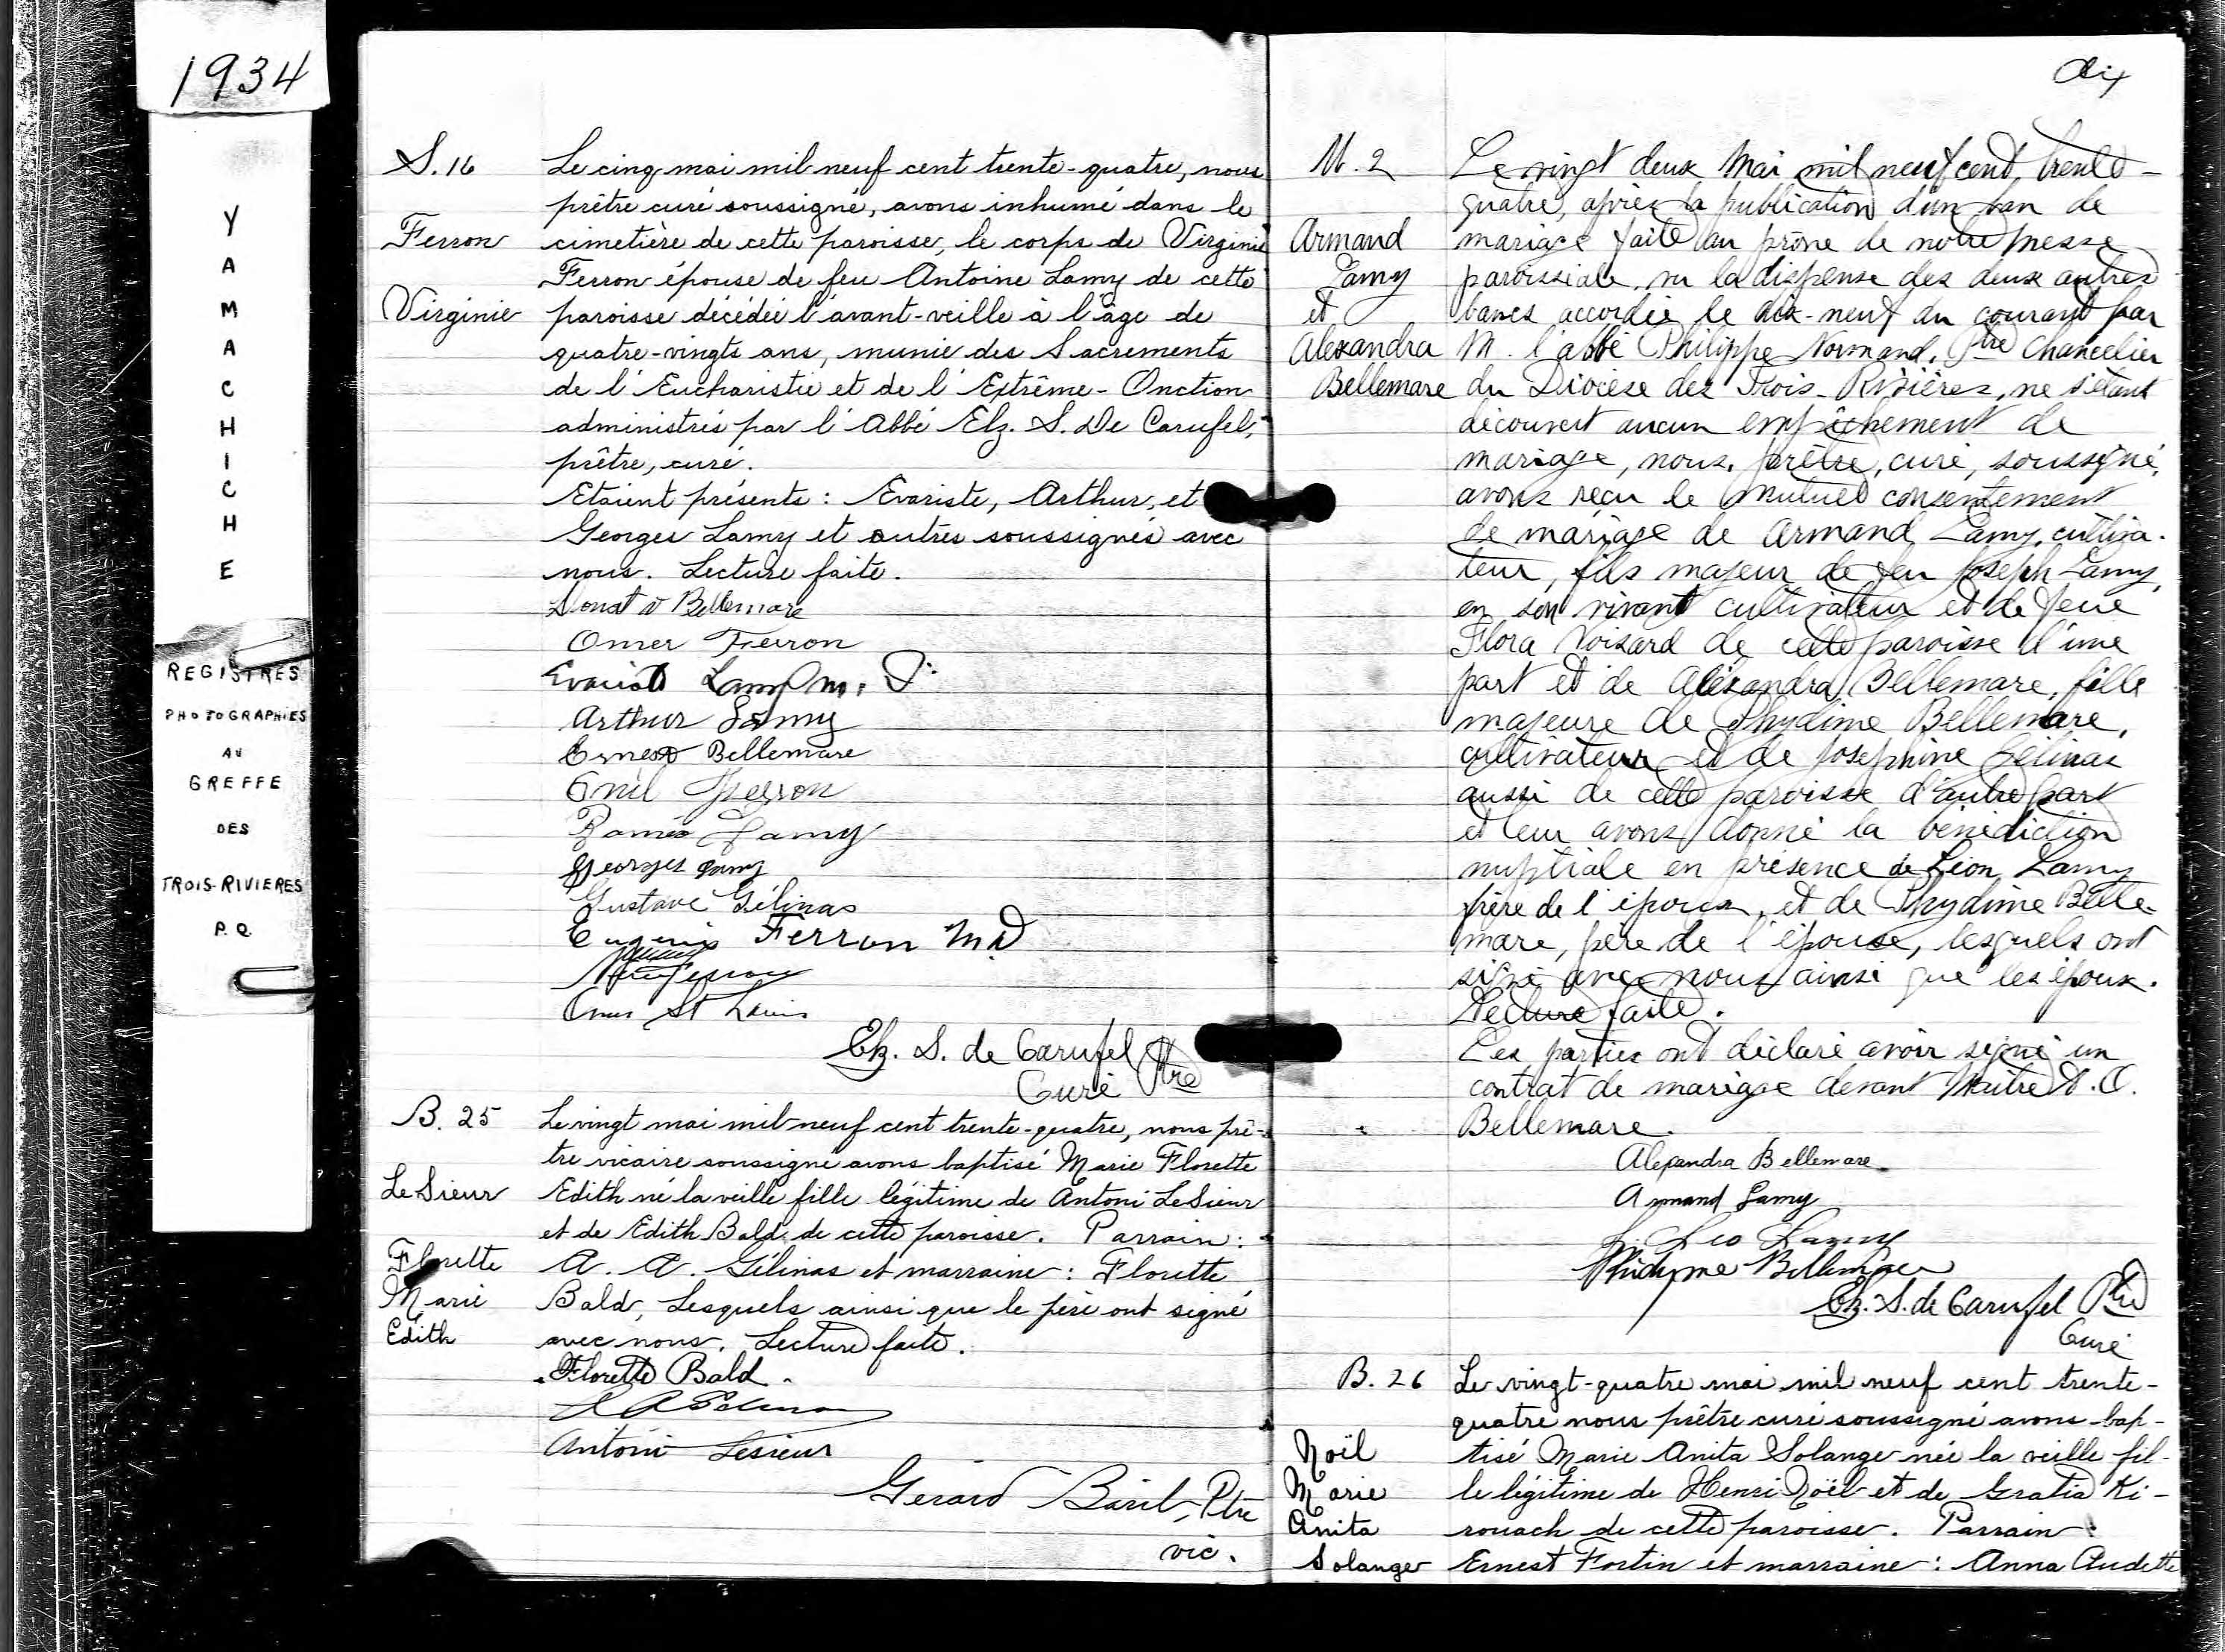 1934
Y
A
M
A
C
H
I
C
H
E
REGISTRES
PHOTOGRAPHIES
AU
GREFFE
DES
TROIS-RIVIERES
P.Q.
S. 16
Ferron
Virginie
Le cinq mai mil neuf cent trente-quatre, nous
prêtre curé soussigné, avons inhumé dans le
cimetière de cette paroisse, le corps de Virginie
Ferron épouse de feu Antoine Lamy de cette
paroisse décédée l'avant-veille à l'âge de
quatre-vingts ans, munie des Sacrements
de l'Eucharistie et de l'Extrême-Onction
administrés par l'Abbé Elz. S. De Carufel,
prêtre, curé.
Etaient présents : Evariste, Arthur, et
Georges Lamy et autres soussignés avec
nous. Lecture faite.
Donat V Bellemare
Omer Ferron
Evariste Lamy M. P.
Arthur Lamy
Ernest Bellemare
Emil Ferron
Roméo Lamy
Georges Lamy
Gustave Gélinas
Eugenie Ferron M.D
Omer St Louis
Elz. S. de Carufel Ptre
Curé
B. 25
LeSieur
Florette
Marie
Edith
Le vingt mai mil neuf cent trente-quatre, nous prê-
tre vicaire soussigné avons baptisé Marie Florette
Edith né la veille fille légitime de Antoni LeSieur
et de Edith Bald de cette paroisse. Parrain :
A. A. Gélinas et marraine : Florette
Bald, Lesquels ainsi que le père ont signé
avec nous. Lecture faite.
Florette Bald.
A A Gelinas
Antoni Lesieur
Gérard Baril, Ptre
vic.
dix
M. 2
Armand
Lamy
et
Alexandra
Bellemare
Le vingt deux Mai mil neuf cent, trente-
quatre, après la publication d'un ban de
mariage faite au prône de notre messe
paroissiale, vu la dispense des deux autres
bancs accordée le dix-neuf du courant par
M. l'abbé Philippe Normand, Ptre Chancelier
du Diocèse des Trois-Rivières, ne s'étant
découvert aucun empêchement de
mariage, nous, prêtre, curé, soussigné,
avons reçu le mutuel consentement
de mariage de Armand Lamy, cultiva-
teur, fils majeur de feu Joseph Lamy,
en son vivant cultivateur et de feue
Flora Voisard de cette paroisse d'une
part et de Alexandra Bellemare, fille
majeure de Phydime Bellemare,
cultivateur et de Josephine Gélinas
aussi de cette paroisse d'autre part
et leur avons donné la bénédiction
nuptiale en présence de Léon Lamy
frère de l'époux, et de Phydime Belle-
mare, père de l'épouse, lesquels ont
signé avec nous ainsi que les époux.
Lecture faite.
Les parties ont déclaré avoir signé un
contrat de mariage devant Maître A. O.
Bellemare.
Alexandra Bellemare
Armand Lamy
L. Leo Lamy
Phidyme Bellemare
Elz. S. de Carufel Ptre
Curé
B. 26
Noël
Marie
Anita
Solange
Le vingt-quatre mai mil neuf cent trente-
quatre nous prêtre curé soussigné avons bap-
tisé Marie Anita Solange née la veille fil-
le légitime de Henri Noël et de Gratia Ki-
rouach de cette paroisse. Parrain :
Ernest Fortin et marraine : Anna Audette